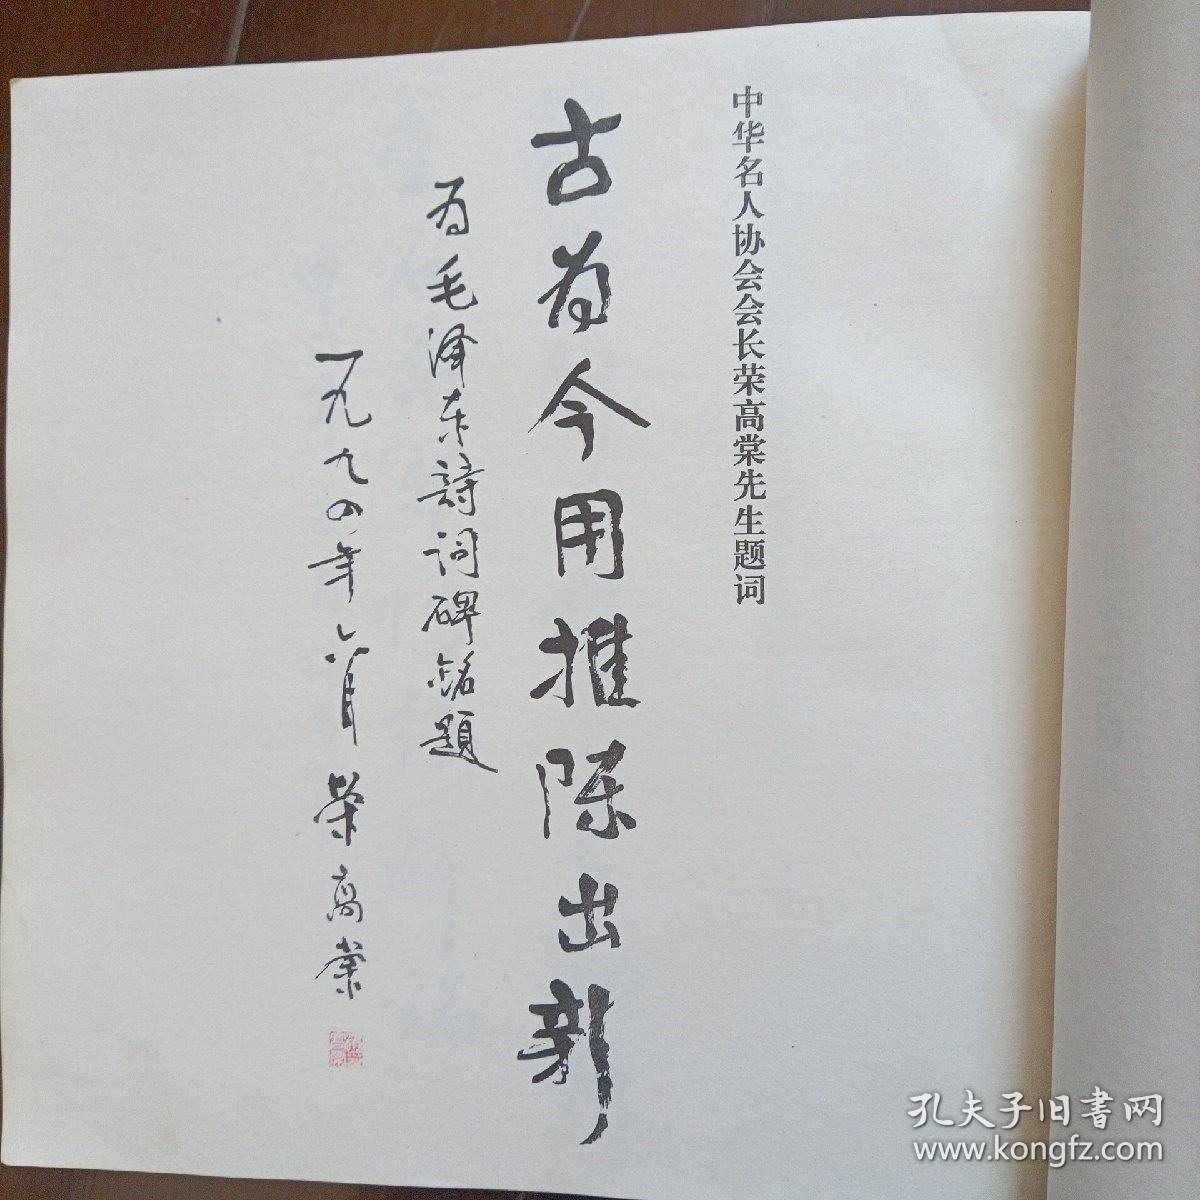 中华名人协会会长荣高棠先生题词
古为今用推陈出新
为毛泽东詩词碑銘題
一九九四年六月 荣高棠
孔夫子旧书网
www.kongfz.com